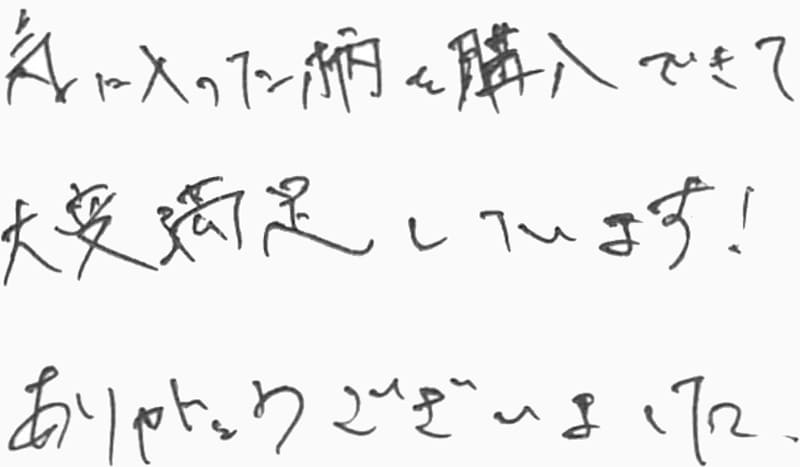 気に入った柄を購入できて
大変満足しています!
ありがとうございました.